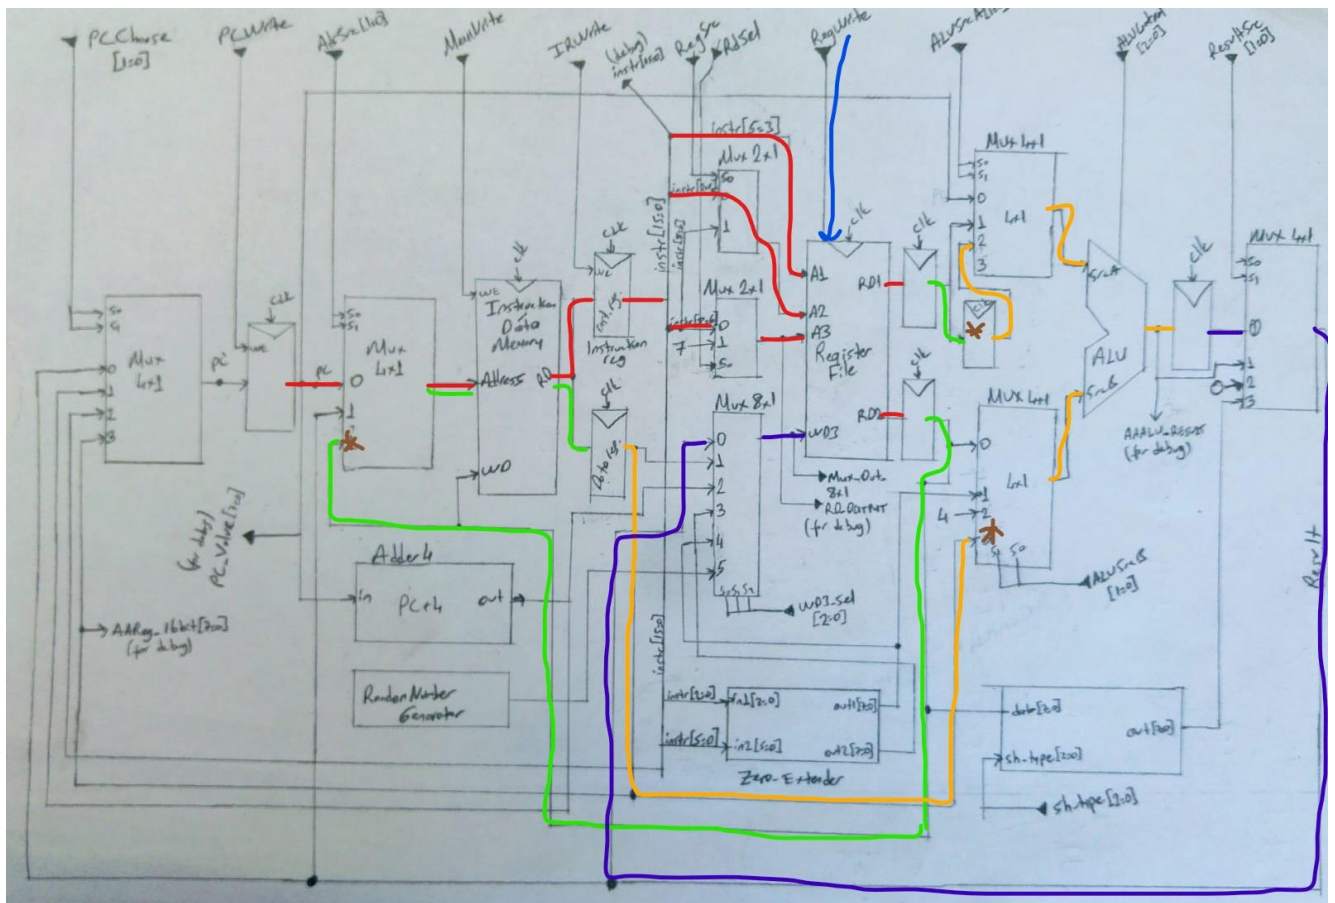 PCChoose
[1:0]
PCWrite
AdrSrc[1:0]
MemWrite
IRWrite
(debug)
instr[15:0]
RegSrc
RdSel
RegWrite
ALUControl
[2:0]
ResultSrc
[1:0]
S0
S1
0
1
2
3
Mux
4x1
PC'
WE
clk
PC
S0
S1
Mux
4x1
0
1
clk
WE
Instruction
Data
Memory
Address
RD
WD
clk
WE
Inst. reg.
Instruction
reg
clk
Data reg.
instr[15:0]
instr[5:3]
Mux 2x1
S0
1
Mux 2x1
0
7
1
S0
Mux 8x1
0
1
2
3
4
5
S0 S1 S2
WD3_sel
[2:0]
clk
A1
A2
A3
Register
File
WD3
RD1
RD2
Mux_Out_
8x1
(for debug)
clk
clk
clk
Mux 4x1
S0
S1
0
1
2
3
4x1
Mux 4x1
0
1
4
2
4x1
S1 S0
ALUSrcB
[1:0]
SrcA
SrcB
ALU
clk
AAALU_RESULT
(for debug)
Mux 4x1
S0
S1
0
1
2
3
Result
(for debug)
PC_Value[7:0]
Adder4
in
PC+4
out
AAReg_16bit[7:0]
(for debug)
Random Number
Generator
instr[15:0]
instr[2:0]
in1[2:0]
out1[7:0]
instr[5:0]
in2[5:0]
out2[7:0]
Zero_Extender
data[7:0]
out[7:0]
sh_type[2:0]
sh_type[2:0]